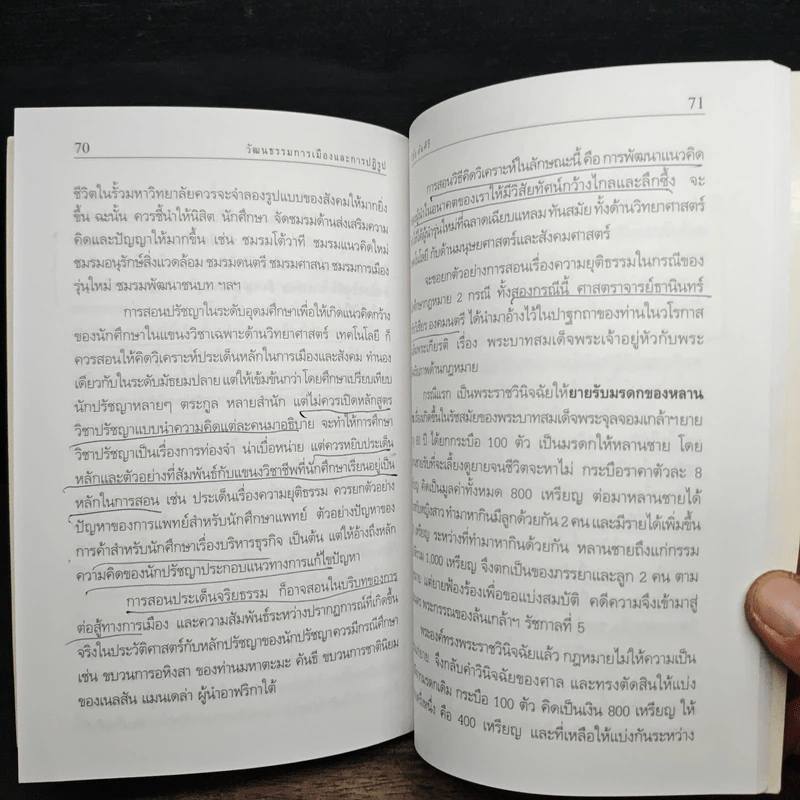 70 วัฒนธรรมการเมืองและการปฏิรูป
ชีวิตในรั้วมหาวิทยาลัยควรจะจำลองรูปแบบของสังคมให้มากยิ่ง
ขึ้น ฉะนั้น ควรชี้นำให้นิสิต นักศึกษา จัดชมรมด้านส่งเสริมความ
คิดและปัญญาให้มากขึ้น เช่น ชมรมโต้วาที ชมรมแนวคิดใหม่
ชมรมอนุรักษ์สิ่งแวดล้อม ชมรมดนตรี ชมรมศาสนา ชมรมการเมือง
รุ่นใหม่ ชมรมพัฒนาชนบท ฯลฯ
การสอนปรัชญาในระดับอุดมศึกษาเพื่อให้เกิดแนวคิดกว้าง
ของนักศึกษาในแขนงวิชาเฉพาะด้านวิทยาศาสตร์ เทคโนโลยี ก็
ควรสอนให้คิดวิเคราะห์ประเด็นหลักในการเมืองและสังคม ทำนอง
เดียวกับในระดับมัธยมปลาย แต่ให้เข้มข้นกว่า โดยศึกษาเปรียบเทียบ
นักปรัชญาหลายๆ ตระกูล หลายสำนัก แต่ไม่ควรเปิดหลักสูตร
วิชาปรัชญาแบบนำความคิดแต่ละคนมาอธิบาย จะทำให้การศึกษา
วิชาปรัชญาเป็นเรื่องการท่องจำ น่าเบื่อหน่าย แต่ควรหยิบประเด็น
หลักและตัวอย่างที่สัมพันธ์กับแขนงวิชาชีพที่นักศึกษาเรียนอยู่เป็น
หลักในการสอน เช่น ประเด็นเรื่องความยุติธรรม ควรยกตัวอย่าง
ปัญหาของการแพทย์สำหรับนักศึกษาแพทย์ ตัวอย่างปัญหาของ
การค้าสำหรับนักศึกษาเรื่องบริหารธุรกิจ เป็นต้น แต่ให้อ้างถึงหลัก
ความคิดของนักปรัชญาประกอบแนวทางการแก้ไขปัญหา
การสอนประเด็นจริยธรรม ก็อาจสอนในบริบทของการ
ต่อสู้ทางการเมือง และความสัมพันธ์ระหว่างปรากฏการณ์ที่เกิดขึ้น
จริงในประวัติศาสตร์กับหลักปรัชญาของนักปรัชญาควรมีกรณีศึกษา
เช่น ขบวนการอหิงสา ของท่านมหาตะมะ คันธี ขบวนการชาตินิยม
ของเนลสัน แมนเดล่า ผู้นำอาฟริกาใต้
71
การสอนวิธีคิดวิเคราะห์ในลักษณะนี้ คือ การพัฒนาแนวคิด
ในอนาคตของเราให้มีวิสัยทัศน์กว้างไกลและลึกซึ้ง จะ
ให้ผู้นำรุ่นใหม่ที่ฉลาดเฉียบแหลม ทันสมัย ทั้งด้านวิทยาศาสตร์
กับด้านมนุษยศาสตร์และสังคมศาสตร์
จะขอยกตัวอย่างการสอนเรื่องความยุติธรรมในกรณีของ
กฎหมาย 2 กรณี ทั้งสองกรณีนี้ ศาสตราจารย์ธานินทร์
องคมนตรี ได้นำมาอ้างไว้ในปาฐกถาของท่านในวโรกาส
เรื่อง พระบาทสมเด็จพระเจ้าอยู่หัวกับพระ
ด้านกฎหมาย
กรณีแรก เป็นพระราชวินิจฉัยให้ยายรับมรดกของหลาน
เกิดขึ้นในรัชสมัยของพระบาทสมเด็จพระจุลจอมเกล้าฯ ยาย
ปี ได้ยกกระบือ 100 ตัว เป็นมรดกให้หลานชาย โดย
ที่จะเลี้ยงดูยายจนชีวิตจะหาไม่ กระบือราคาตัวละ 8
คิดเป็นมูลค่าทั้งหมด 800 เหรียญ ต่อมาหลานชายได้
หญิงสาว ทำมาหากินมีลูกด้วยกัน 2 คน และมีรายได้เพิ่มขึ้น
เหรียญ ระหว่างที่ทำมาหากินด้วยกัน หลานชายถึงแก่กรรม
1,000 เหรียญ จึงตกเป็นของภรรยาและลูก 2 คน ตาม
แต่ยายฟ้องร้องเพื่อขอแบ่งสมบัติ คดีความจึงเข้ามาสู่
พระกรรณของล้นเกล้าฯ รัชกาลที่ 5
พระองค์ทรงพระราชวินิจฉัยแล้ว กฎหมายไม่ให้ความเป็น
จึงกลับคำวินิจฉัยของศาล และทรงตัดสินให้แบ่ง
มรดกเดิม กระบือ 100 ตัว คิดเป็นเงิน 800 เหรียญ ให้
ครึ่งหนึ่ง คือ 400 เหรียญ และที่เหลือให้แบ่งกันระหว่าง